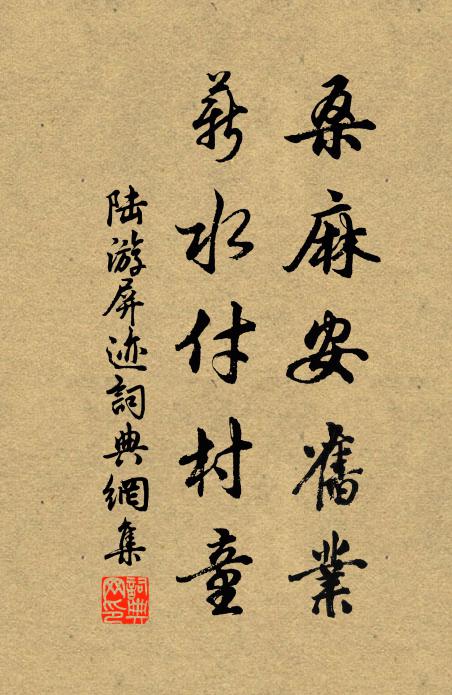 桑麻安舊業
薪水付村童
陆游屏迹詞典網集
詞典网印